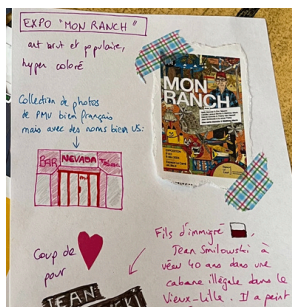 EXPO "MON RANCH"
art brut et populaire,
hyper coloré
MON
RANCH
Collection de photos
de PMU bien français
mais avec des noms bien US:
BAR NEVADA Tabac
Coup de
pour
JEAN
Fils d'immigré
Jean Smilowski a
vécu 40 ans dans une
cabane illégale dans le
Vieux-Lille. Il a peint